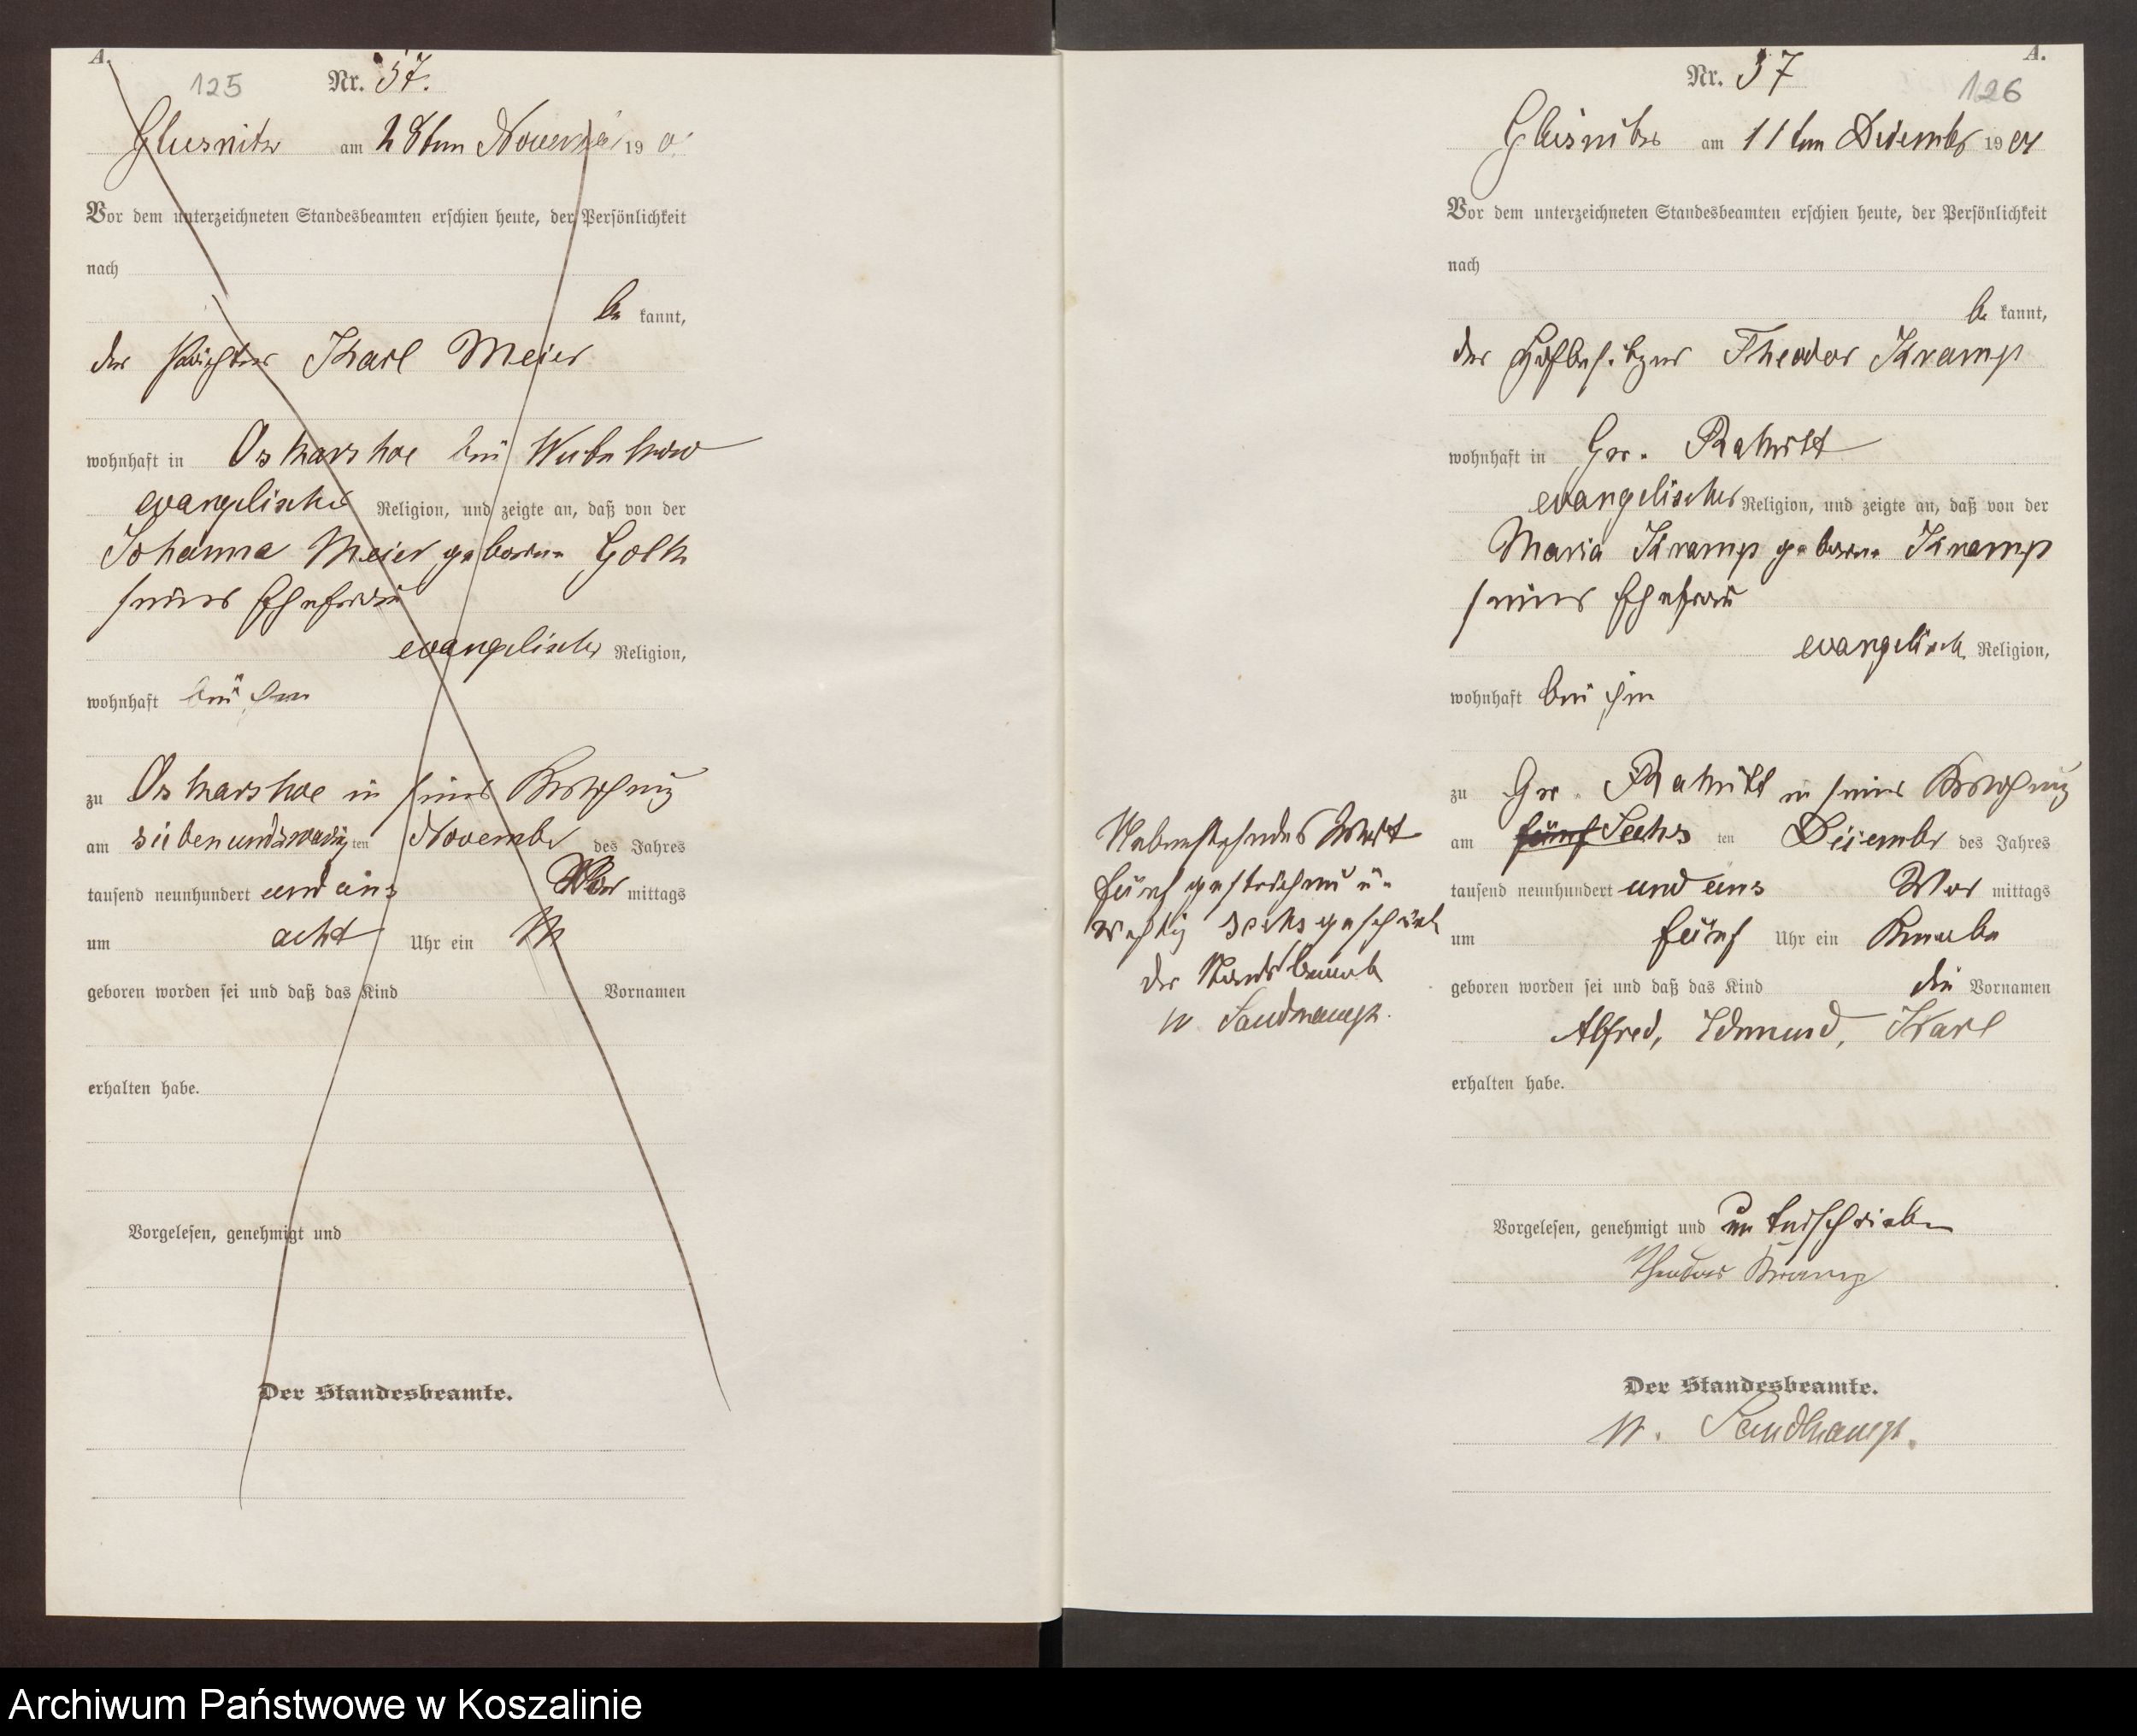 A.
125
Nr. 57.
Glusnitz am 28ten November 190
Vor dem unterzeichneten Standesbeamten erschien heute, der Persönlichkeit
nach
be kannt,
der Pächter Karl Meier
wohnhaft in Oskarshoe bei
evangelischer Religion, und zeigte an, daß von der
Johanna Meier geborne Golk
seiner Ehefrau
evangelischer Religion,
wohnhaft bei ihm
zu Oskarshoe in seiner Wohnung
am siebenundzwanzig ten November des Jahres
tausend neunhundert und eins Vor mittags
um acht Uhr ein M
geboren worden sei und daß das Kind Vornamen
erhalten habe.
Vorgelesen, genehmigt und
Der Standesbeamte.
A.
Nr. 57
126
Glusnitz am 11ten Dezember 1901
Vor dem unterzeichneten Standesbeamten erschien heute, der Persönlichkeit
nach
be kannt,
der Hofbesitzer Theodor Kramp
wohnhaft in Gr. Rakitt
evangelischer Religion, und zeigte an, daß von der
Maria Kramp geborne Kramp
seiner Ehefrau
evangelisch Religion,
wohnhaft bei ihm
zu Gr. Rakitt in seiner Wohnung
am fünf Sechs ten Dezember des Jahres
tausend neunhundert und eins Vor mittags
um fünf Uhr ein Knabe
geboren worden sei und daß das Kind die Vornamen
Alfred, Edmund, Karl
erhalten habe.
Vorgelesen, genehmigt und unterschrieben
Theodor Kramp
Der Standesbeamte.
W. Sandkamp.
Nebenstehendes Wort
fünf gestrichen u.
richtig sechs geschrieb
der Standesbeamte
W Sandkamp.
Archiwum Państwowe w Koszalinie